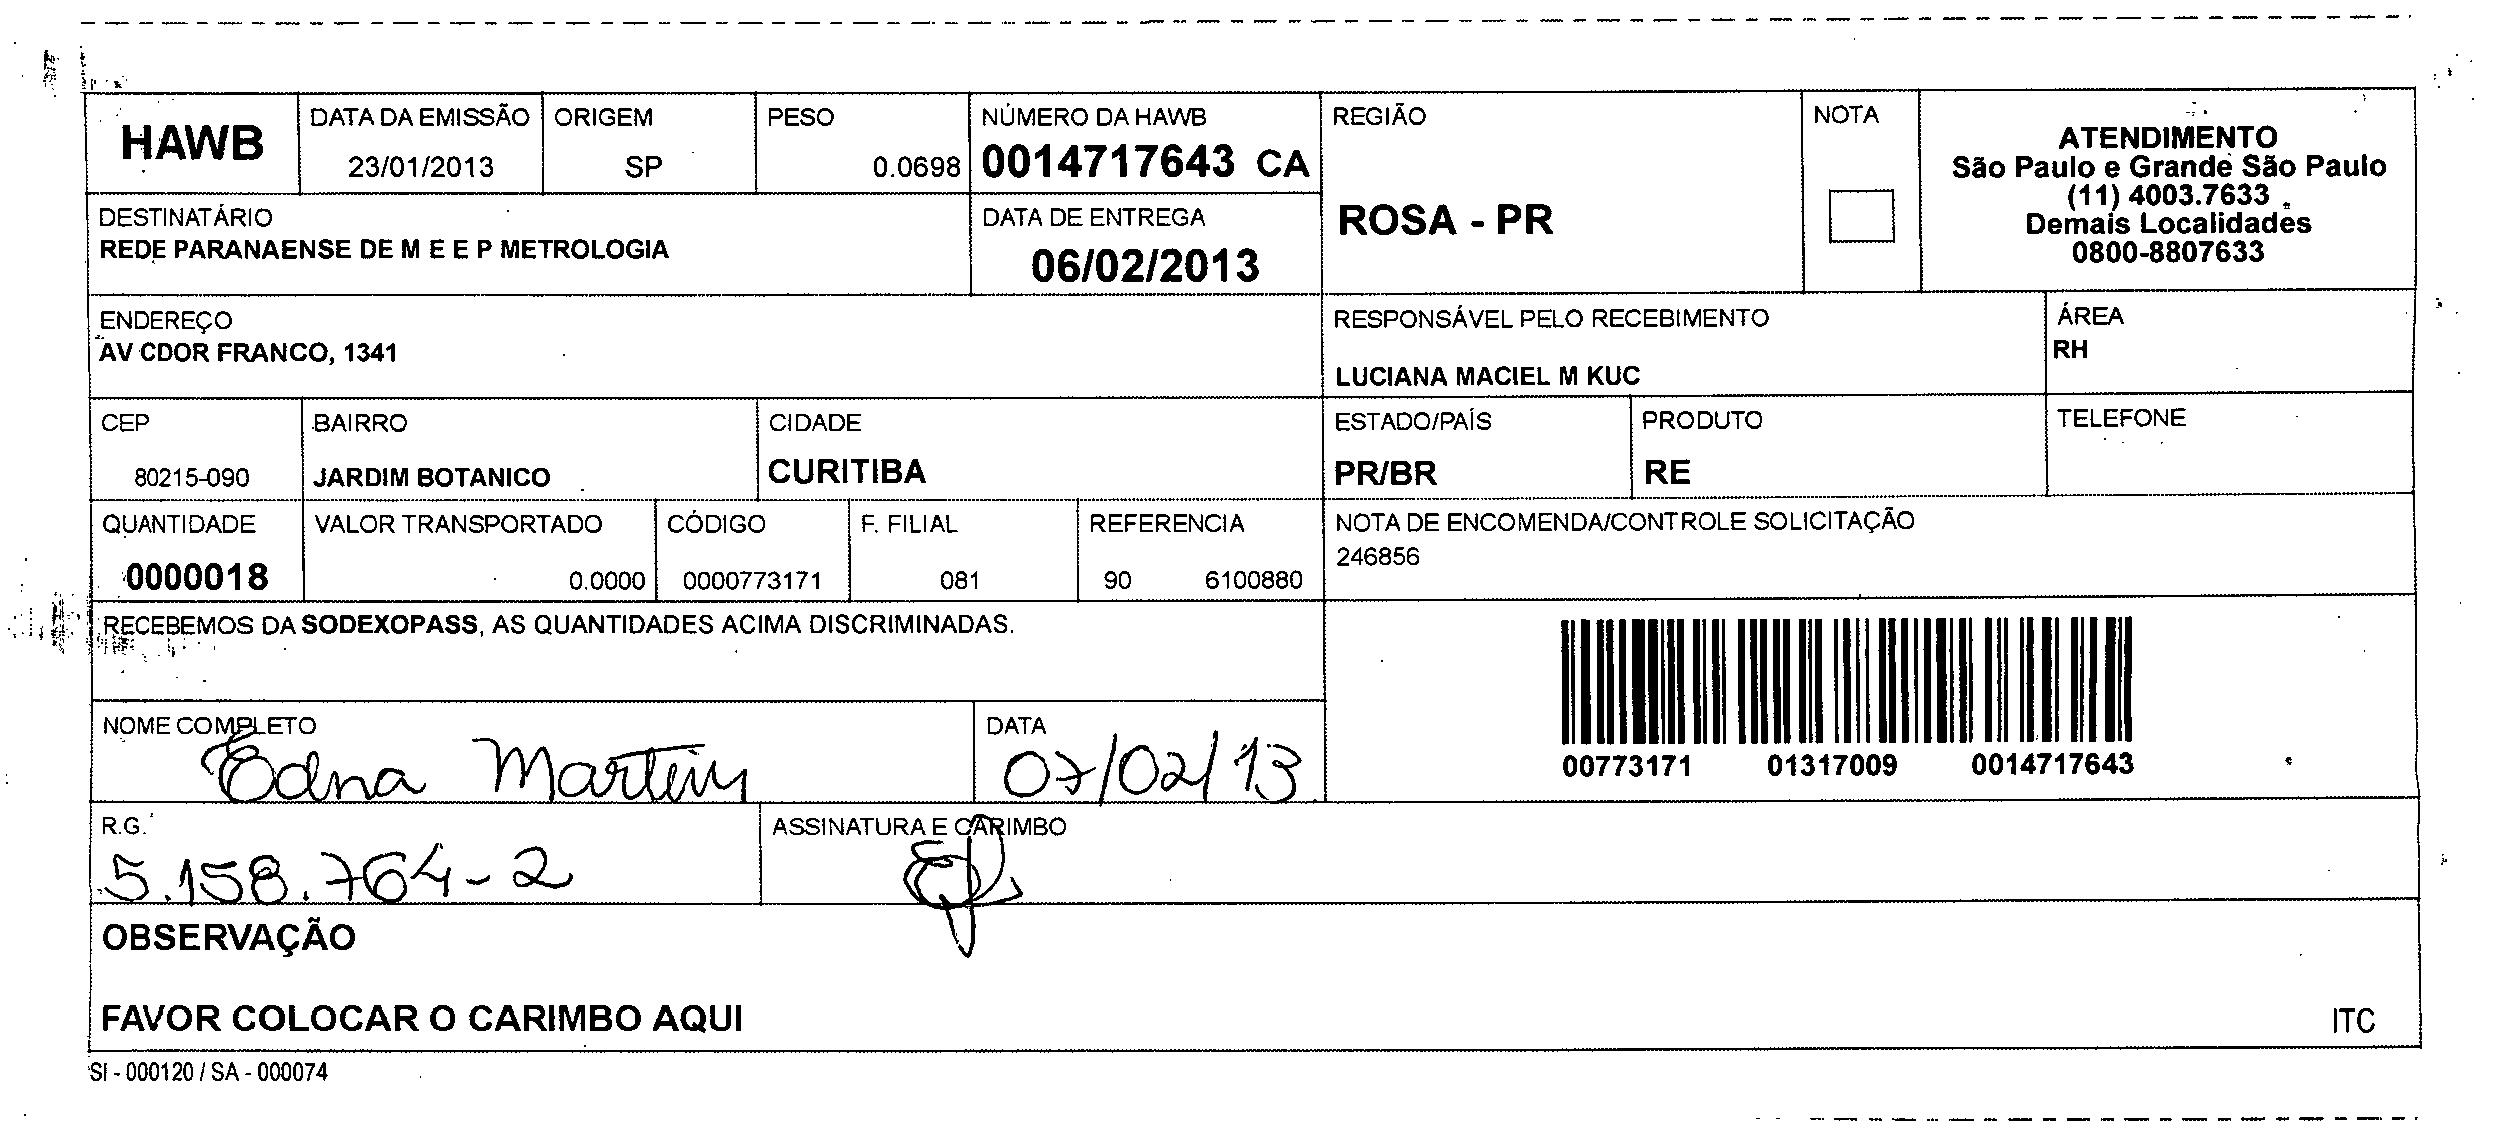 HAWB
DATA DA EMISSÃO
23/01/2013
ORIGEM
SP
PESO
0.0698
NÚMERO DA HAWB
0014717643 CA
REGIÃO
ROSA - PR
NOTA
ATENDIMENTO
São Paulo e Grande São Paulo
(11) 4003.7633
Demais Localidades
0800-8807633
DESTINATÁRIO
REDE PARANAENSE DE M E E P METROLOGIA
DATA DE ENTREGA
06/02/2013
ENDEREÇO
AV CDOR FRANCO, 1341
RESPONSÁVEL PELO RECEBIMENTO
LUCIANA MACIEL M KUC
ÁREA
RH
CEP
80215-090
BAIRRO
JARDIM BOTANICO
CIDADE
CURITIBA
ESTADO/PAÍS
PR/BR
PRODUTO
RE
TELEFONE
QUANTIDADE
0000018
VALOR TRANSPORTADO
0.0000
CÓDIGO
0000773171
F. FILIAL
081
REFERENCIA
90 6100880
NOTA DE ENCOMENDA/CONTROLE SOLICITAÇÃO
246856
RECEBEMOS DA SODEXOPASS, AS QUANTIDADES ACIMA DISCRIMINADAS.
00773171 01317009 0014717643
NOME COMPLETO
Edna Martins
DATA
07/02/13
R.G.
5.158.764-2
ASSINATURA E CARIMBO
OBSERVAÇÃO
FAVOR COLOCAR O CARIMBO AQUI
ITC
SI - 000120 / SA - 000074